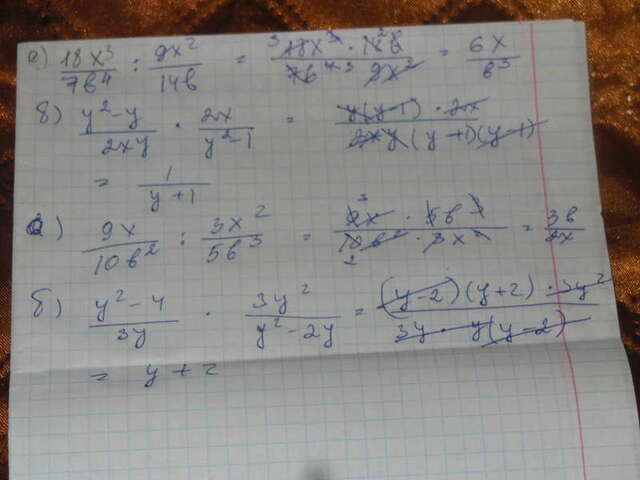 а) 18x³/7b⁴ : 9x²/14b = 18x³ · 14b / 7b⁴ · 9x² = 6x/b³
б) y²-y/2xy · 2x/y²-1 = y(y-1) · 2x / 2xy(y+1)(y-1)
= 1/y+1
а) 9x/10b² : 3x²/5b³ = 9x · 5b³ / 10b² · 3x² = 3b/2x
б) y²-4/3y · 3y²/y²-2y = (y-2)(y+2) · 3y² / 3y · y(y-2)
= y+2